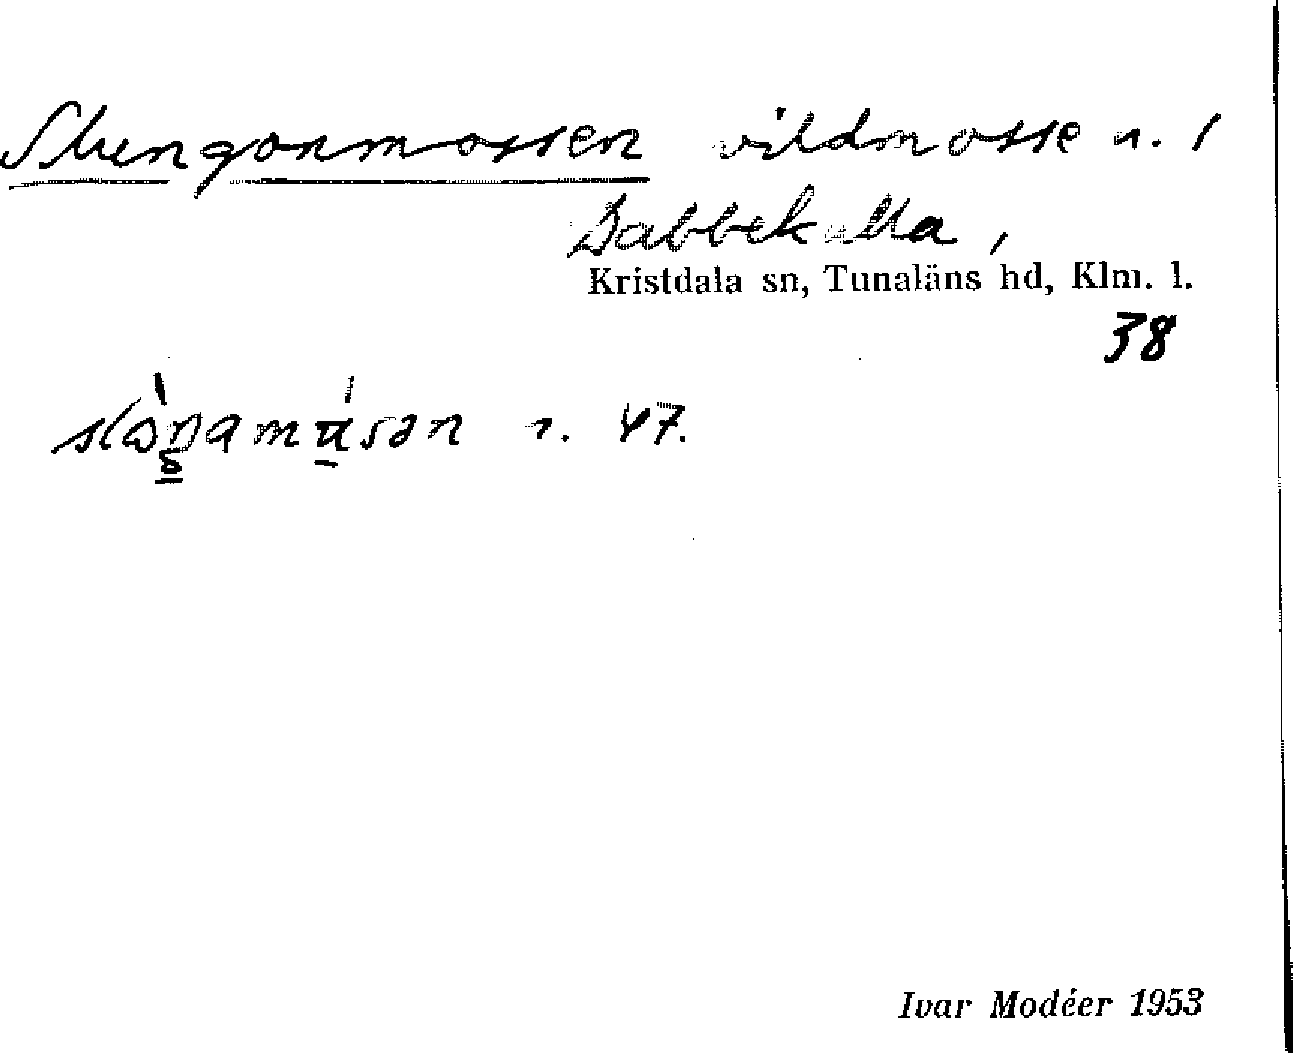 vildmosse n. 1
Dabbekulla,
Kristdala sn, Tunaläns hd, Klm. l.
38
n. 47.
Ivar Modéer 1953